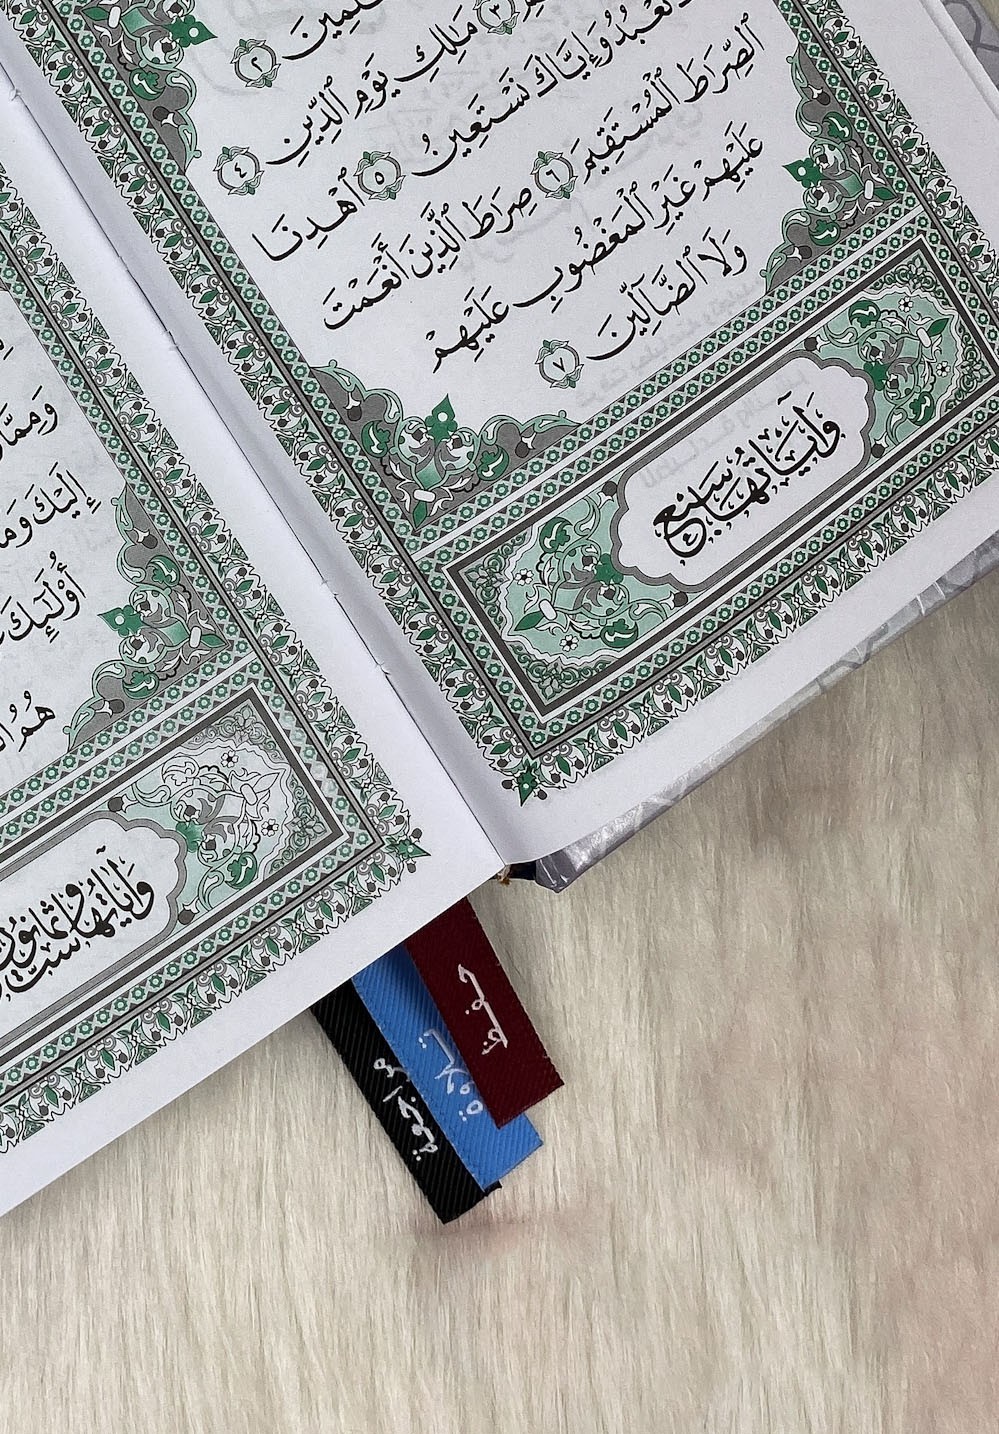 ـلَمِينَ ٢
٣ مَٰلِكِ يَوْمِ ٱلدِّينِ ٤
نَعْبُدُ وَإِيَّاكَ نَسْتَعِينُ ٥ ٱهْدِنَا
ٱلصِّرَٰطَ ٱلْمُسْتَقِيمَ ٦ صِرَٰطَ ٱلَّذِينَ أَنْعَمْتَ
عَلَيْهِمْ غَيْرِ ٱلْمَغْضُوبِ عَلَيْهِمْ
وَلَا ٱلضَّآلِّينَ ٧
وَآيَاتُهَا سَبْعٌ
وَمِمَّا
إِلَيْكَ وَمَا
أُوْلَٰٓئِكَ
هُمُ
وَآيَاتُهَا سِتٌّ وَثَمَانُونَ
حفظ
تلاوة
مراجعة